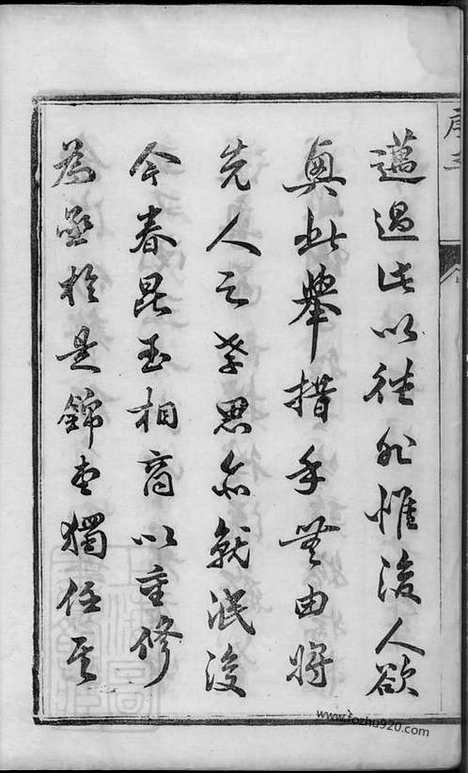 序三
邁過此以往非惟後人欲
與此舉措手無由將
先人之孝思亦就泯後
今春昆玉相商以重修
為亟於是錦堂獨任其
www.fozhu920.com